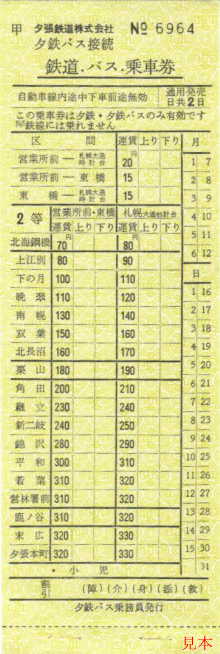 甲 夕張鉄道株式会社 № 6964
夕鉄バス接続
鉄道.バス.乗車券
自動車線内途中下車前途無効
通用発売日共2日
この乗車券は夕鉄・夕鉄バスのみ有効です
鉄線には乗れません
区間 運賃 上り 下り 月
営業所前―札幌大通時計台 20円
営業所前―東橋 15
東橋―札幌大通時計台 15
2等 営業所前・東橋 札幌大通時計台
運賃 上り 下り 運賃 上り 下り
北海鋼機 70円 80円
上江別 80 90
下の月 100 110
晩翠 110 120
南幌 130 140
双葉 150 160
北長沼 160 170
栗山 180 190
角田 200 210
継立 230 240
新二岐 240 250
錦沢 280 290
平和 300 310
若葉 310 320
営林署前 310 320
鹿ノ谷 310 320
末広 320 330
夕張本町 320 330
月
1 7
2 8
3 9
4 10
5 11
6 12
日
1 16
2 17
3 18
4 19
5 20
6 21
7 22
8 23
9 24
10 25
11 26
12 27
13 28
14 29
15 30
31
・小児
割引 (障)(介)(身)(添)(救)
夕鉄バス乗務員発行
見本